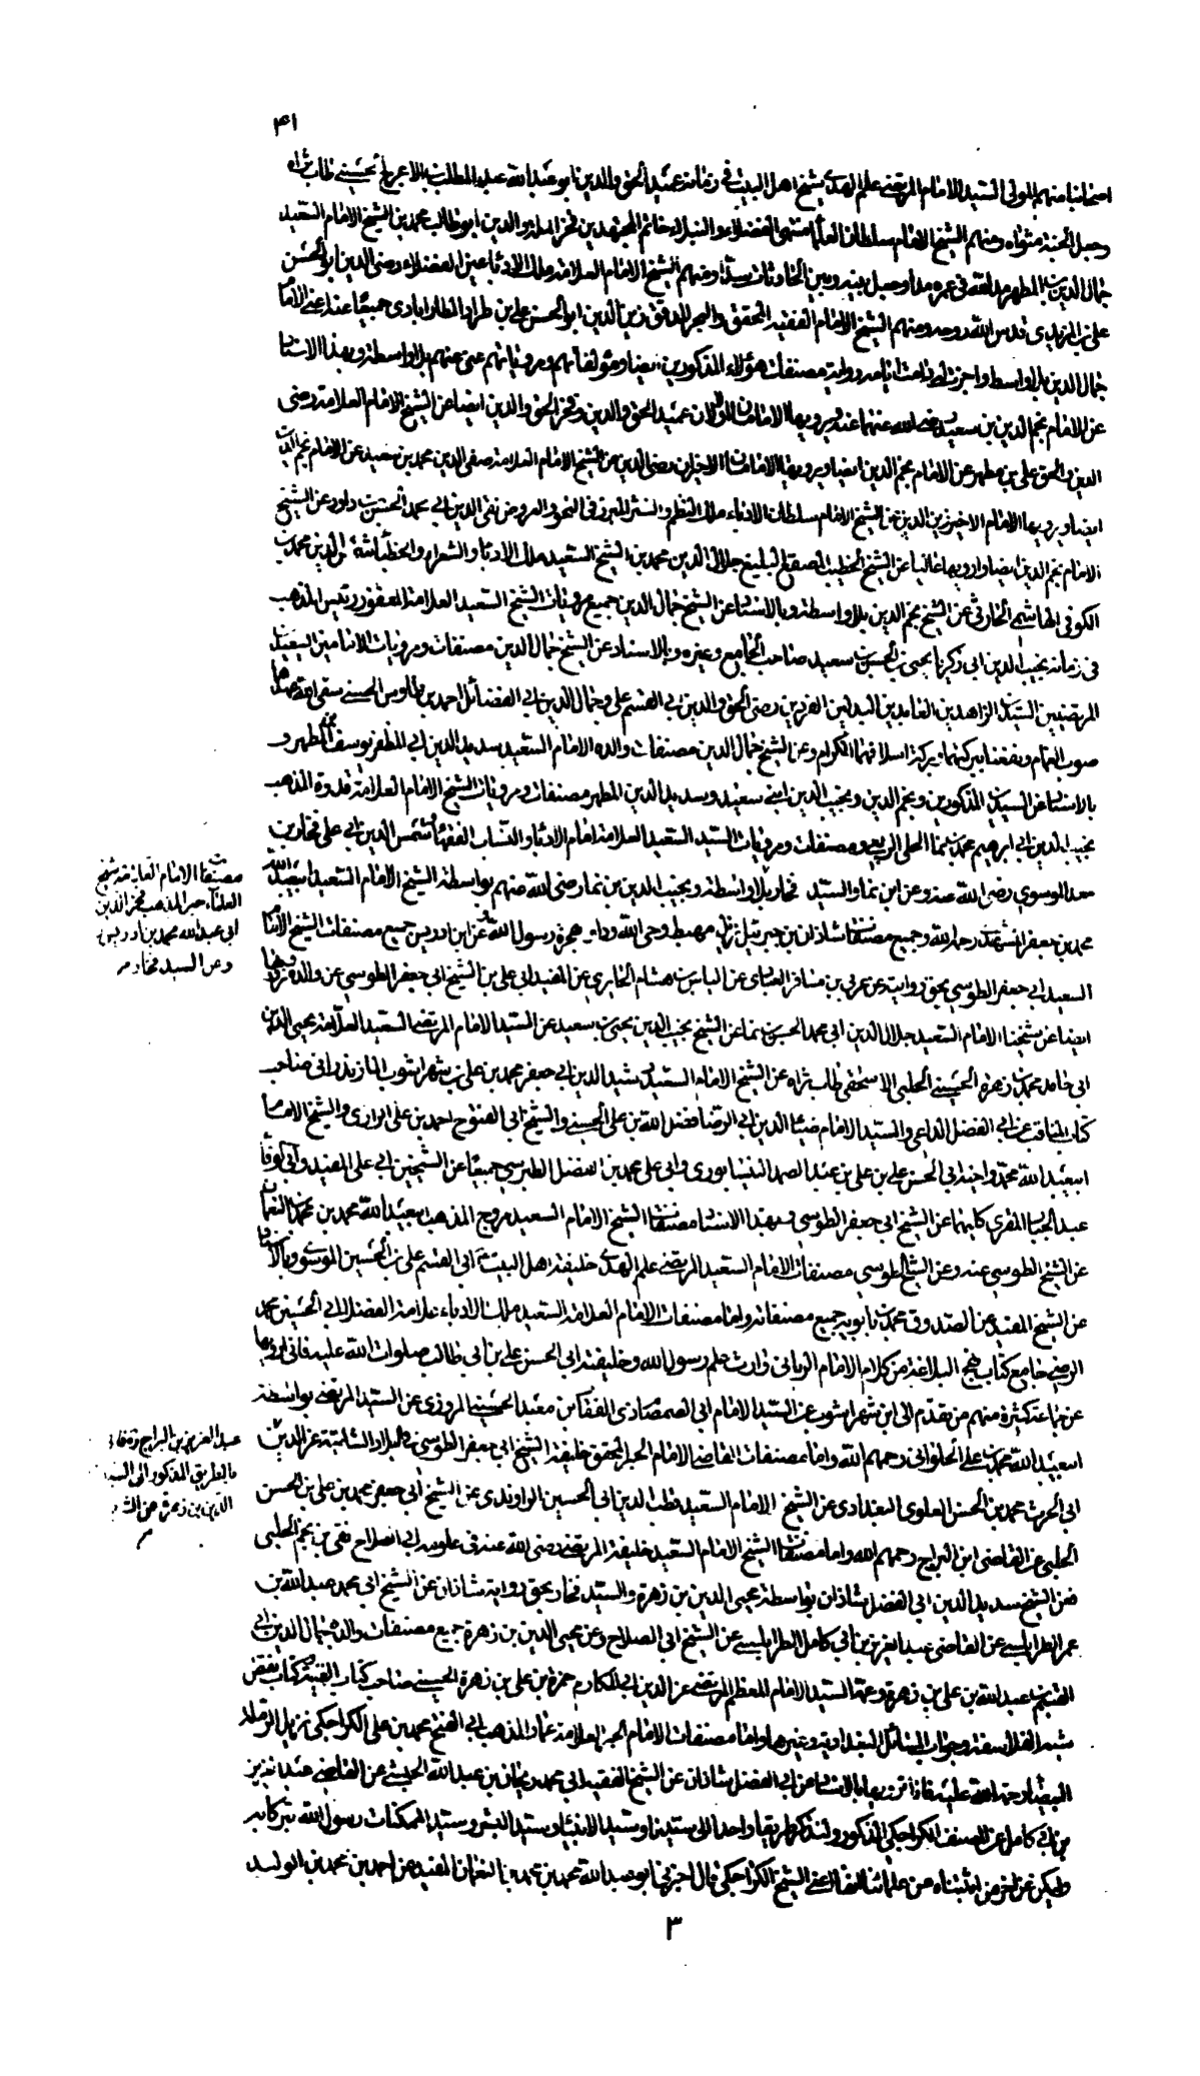 ۴۱
اصحابنا منهم المولى السيد الامام المرتضى علم الهدى شيخ اهل البيت في زمانه عميد الحق والدين ابو عبد الله عبد المطلب بن الاعرج الحسيني طاب ثراه
وجعل الجنة مثواه ومنهم الشيخ الامام سلطان العلماء منتهى الفضلاء والنبلاء خاتم المجتهدين فخر الملة والدين ابو طالب محمد بن الشيخ الامام السعيد
جمال الدين بن المطهر مد الله في عمره مدا وجعل بينه وبين الحادثات سدا ومنهم الشيخ الامام العلامة ملك الادباء عين الفضلاء رضي الدين ابو الحسن
علي بن المزيدي قدس الله روحه ومنهم الشيخ الامام الفقيه المحقق والبحر المدقق زين الدين ابو الحسن علي بن طراد المطارابادي جميعا عنه اعني الامام
جمال الدين بلا واسطة واجزت له دامت ايامه رواية مصنفات هؤلاء المذكورين ايضا ومؤلفاتهم ومروياتهم عني عنهم بلا واسطة وبهذا الاسناد
عن الامام نجم الدين بن سعيد رضي الله عنهما عنه ويرويها الامامان المولان عميد الحق والدين وفخر الحق والدين ايضا عن الشيخ الامام العلامة رضي
الدين والحق علي بن مطهر عن الامام نجم الدين ايضا ويرويها الامامان الاخيران رضي الدين عن الشيخ الامام العلامة صفي الدين محمد بن سعيد عن الامام نجم الدين
ايضا ويرويها الامام الاخير زين الدين عن الشيخ الامام سلطان الادباء ملك النظم والنثر المبرز في النحو والعروض تقي الدين ابي محمد الحسن بن داود عن الشيخ
الامام نجم الدين ايضا وارويها غاليا عن الشيخ الخطيب المصقع البليغ جلال الدين محمد بن الشيخ السعيد ملك الادباء والشعراء والخطباء شمس الدين محمد بن
الكوفي الهاشمي الحارثي عن الشيخ نجم الدين بلا واسطة وبالاسناد عن الشيخ جمال الدين جميع مرويات الشيخ السعيد العلامة المغفور رئيس المذهب
في زمانه نجيب الدين ابي زكريا يحيى بن الحسن بن سعيد صاحب الجامع وغيره وبالاسناد عن الشيخ جمال الدين مصنفات ومرويات الامامين السعيدين
المرتضيين السيدين الزاهدين العابدين البدلين الفردين رضي الحق والدين ابي القسم علي وجمال الدين ابي الفضائل احمد بن طاوس الحسني سقى الله عهدهما
صوب الغمام ونفعنا ببركتهما وبركة اسلافهما الكرام وعن الشيخ جمال الدين مصنفات والده الامام السعيد سديد الدين ابي المظفر يوسف بن المطهر و
بالاسناد عن السيدين المذكورين ونجم الدين ونجيب الدين ابني سعيد وسديد الدين المطهر مصنفات ومرويات الشيخ الامام العلامة قدوة المذهب
نجيب الدين ابي ابرهيم محمد بن نما الحلي الربعي ومصنفات ومرويات السيد السعيد العلامة امام الادباء والنساب الفقهاء شمس الدين ابي علي فخار بن
معد الموسوي رضي الله عنه وعن ابن نما والسيد فخار بلا واسطة ونجيب الدين بن نما رضي الله عنهم بواسطة الشيخ الامام السعيد ابي عبد الله
محمد بن جعفر المشهدي رحمه الله وجميع مصنفات شاذان بن جبرئيل نزيل مهبط وحي الله ودار هجرة رسول الله وعن ابن ادريس جميع مصنفات الشيخ الامام
السعيد ابي جعفر الطوسي بحق روايته عن عربي بن مسافر العبادي عن الياس بن هشام الحايري عن المفيد ابي علي بن الشيخ ابي جعفر الطوسي عن والده ونرويها
ايضا عن شيخنا الامام السعيد جلال الدين ابي محمد الحسن بن نما عن الشيخ نجيب الدين يحيى بن سعيد عن السيد الامام المرتضى السعيد العلامة محيي الدين
ابي حامد محمد بن زهرة الحسيني الحلبي الاسحقي طاب ثراه عن الشيخ الامام السعيد رشيد الدين ابي جعفر محمد بن علي بن شهراشوب المازندراني صاحب
كتاب المناقب عن ابي الفضل الداعي والسيد الامام ضياء الدين ابي الرضا فضل الله بن علي الحسني والشيخ ابي الفتوح احمد بن علي الرازي والشيخ الامام
ابي عبد الله محمد واخيه ابي الحسن علي بن علي بن عبد الصمد النيشابوري وابي علي محمد بن الفضل الطبرسي جميعا عن الشيخين ابي علي المفيد وابي الوفا
عبد الجبار المقري كليهما عن الشيخ ابي جعفر الطوسي وبهذا الاسناد مصنفات الشيخ الامام السعيد مروج المذهب ابي عبد الله محمد بن محمد بن النعمان
عن الشيخ الطوسي عنه وعن الشيخ الطوسي مصنفات الامام السعيد المرتضى علم الهدى خليفة اهل البيت ابي القسم علي بن الحسين الموسوي وبالاسناد
عن الشيخ المفيد عن الصدوق محمد بن بابويه جميع مصنفاته واما مصنفات الامام العلامة السعيد ملك الادباء علامة الفضلاء ابي الحسين محمد
الرضي جامع كتاب نهج البلاغة من كلام الامام الرباني وارث علم رسول الله وخليفته ابي الحسن علي بن ابي طالب صلوات الله عليه فاني ارويها
عن جماعة كثيرة منهم من تقدم الى ابن شهراشوب عن السيد الامام ابي الصمصام ذي الفقار بن معبد الحسيني المروزي عن السيد المرتضى بواسطة
ابي عبد الله محمد بن علي الحلواني رحمهم الله واما مصنفات القاضي الامام الحبر المحقق خليفة الشيخ ابي جعفر الطوسي في البلاد الشامية عز الدين
ابي الحرث محمد بن الحسن العلوي البغدادي عن الشيخ الامام السعيد قطب الدين ابي الحسين الراوندي عن الشيخ ابي جعفر محمد بن علي بن المحسن
الحلبي عن القاضي ابن البراج رحمهم الله واما مصنفات الشيخ الامام السعيد خليفة المرتضى رضي الله عنه في علومه ابي الصلاح تقي بن نجم الحلبي
فعن الشيخ سديد الدين ابي الفضل شاذان بواسطة محيي الدين بن زهرة والسيد فخار بحق رواية شاذان عن الشيخ ابي محمد عبد الله بن
عمر الطرابلسي عن القاضي عبد العزيز بن ابي كامل الطرابلسي عن الشيخ ابي الصلاح وعن محيي الدين بن زهرة جميع مصنفات والده جمال الدين ابي
القسم بن عبد الله بن علي بن زهرة وعمه السيد الامام المعظم المرتضى عز الدين ابي المكارم حمزة بن علي بن زهرة الحسيني صاحب كتاب الغنية وكتاب نقض
شبه الفلاسفة وجواب المسائل البغدادية وغيرها واما مصنفات الامام الحبر العلامة عماد المذهب ابي الفتح محمد بن علي الكراجكي نزيل الرملة
البيضاء رحمة الله عليه فانا نرويها بالاسناد عن ابي الفضل شاذان عن الشيخ الفقيه ابي محمد ريحان بن عبد الله الحبشي عن القاضي عبد العزيز
بن ابي كامل عن المصنف الكراجكي المذكور ولنذكر طريقا واحدا الى سيدنا وسيد الانبياء وسيد البشر وسيد الممكنات رسول الله تبركا به
وليكن عن اخر من اثبتناه من علمائنا الفا اعني الشيخ الكراجكي قال اخبرني ابو عبد الله محمد بن محمد بن النعمان المفيد عن احمد بن محمد بن الوليد
مصنفات الامام العلامة شيخ
العلماء حبر المذهب فخر الدين
ابي عبد الله محمد بن ادريس
وعن السيد فخار
عبد العزيز بن البراج
بالطريق المذكور الى السيد
الدين بن زهرة عن الشريف
٣